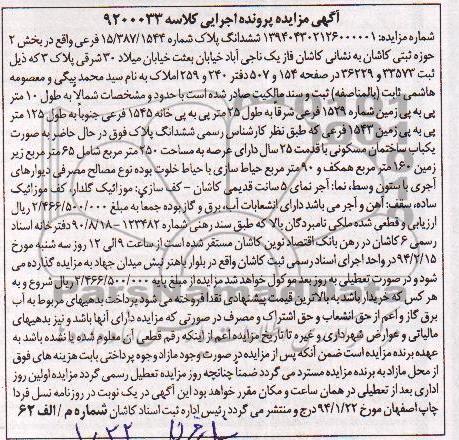 آگهی مزایده پرونده اجرایی کلاسه ۹۲۰۰۰۳۳
شماره مزایده: ۱۳۹۴۰۴۳۰۲۱۲۶۰۰۰۰۰۱ ششدانگ پلاک شماره ۱۵/۳۸۷/۱۵۴۴ فرعی واقع در بخش ۲
حوزه ثبتی کاشان به نشانی کاشان فاز یک ناجی آباد خیابان بعثت خیابان میلاد ۳۰ شرقی پلاک ۳ که ذیل
ثبت ۳۳۵۷۳ و ۳۶۲۲۹ در صفحه ۱۵۴ و ۵۰۷ دفتر ۲۴۰ و ۲۵۹ املاک به نام سید محمد بیگی و معصومه
هاشمی ثابت (بالمناصفه) ثبت و سند مالکیت صادر شده است با حدود و مشخصات شمالاً به طول ۱۰ متر
پی به پی زمین شماره ۱۵۳۹ فرعی شرقا به طول ۲۵ متر پی به پی خانه ۱۵۴۵ فرعی جنوباً به طول ۱۲۵ متر
پی به پی زمین ۱۵۴۳ فرعی که طبق نظر کارشناس رسمی ششدانگ پلاک فوق در حال حاضر به صورت
یکباب ساختمان مسکونی با قدمت ۲۵ سال دارای عرصه به مساحت ۲۵۰ متر مربع شامل ۶۵ متر مربع زیر
زمین ۱۶۰ متر مربع همکف و ۹۰ متر مربع حیاط سازی با حیاط خلوت بوده نوع مصالح مصرفی دیوارهای
آجری با ستون وسط، نما: آجر نمای ۵ سانت قدیمی کاشان - کف سازی: موزائیک گلدار، کف موزائیک
ساده، سقف: آهن و آجر می باشد دارای انشعابات آب، برق و گاز بوده جمعا به مبلغ ۲/۴۶۶/۵۰۰/۰۰۰ ریال
ارزیابی و قطعی شده ملکی نامبردگان بالا که طبق سند رهنی شماره ۱۳۳۴۸۲ - ۹۰/۸/۱۸ دفترخانه اسناد
رسمی ۶ کاشان در رهن بانک اقتصاد نوین کاشان مستقر شده است از ساعت ۹ الی ۱۲ روز سه شنبه مورخ
۹۴/۲/۱۵ در واحد اجرای اسناد رسمی ثبت کاشان واقع در بلوار باهنر نبش میدان جهاد به مزایده گذارده می
شود و در صورت تعطیلی به روز بعد موکول خواهد شد مزایده از مبلغ پایه ۲/۴۶۶/۵۰۰/۰۰۰ ریال شروع و به
هر کس که خریدار باشد به بالاترین قیمت پیشنهادی نقدا فروخته می شود پرداخت بدهیهای مربوط به آب
برق گاز و اعم از حق انشعاب و حق اشتراک و مصرف در صورتی که مزایده دارای آنها باشد و نیز بدهیهای
مالیاتی و عوارض شهرداری و غیره تا تاریخ مزایده اعم از اینکه رقم قطعی آن معلوم شده یا نشده باشد به
عهده برنده مزایده است ضمن آنکه پس از مزایده در صورت وجود مازاد وجوه پرداختی بابت هزینه های فوق از
محل مازاد به برنده مزایده مسترد می گردد ضمنا چنانچه روز مزایده تعطیل رسمی گردد مزایده اولین روز
اداری بعد از تعطیلی در همان ساعت و مکان مقرر خواهد بود این آگهی در یک نوبت در روزنامه نسل فردا
چاپ اصفهان مورخ ۹۴/۱/۲۲ درج و منتشر می گردد رئیس اداره ثبت اسناد کاشان شماره م / الف ۶۲
۱/۲۲